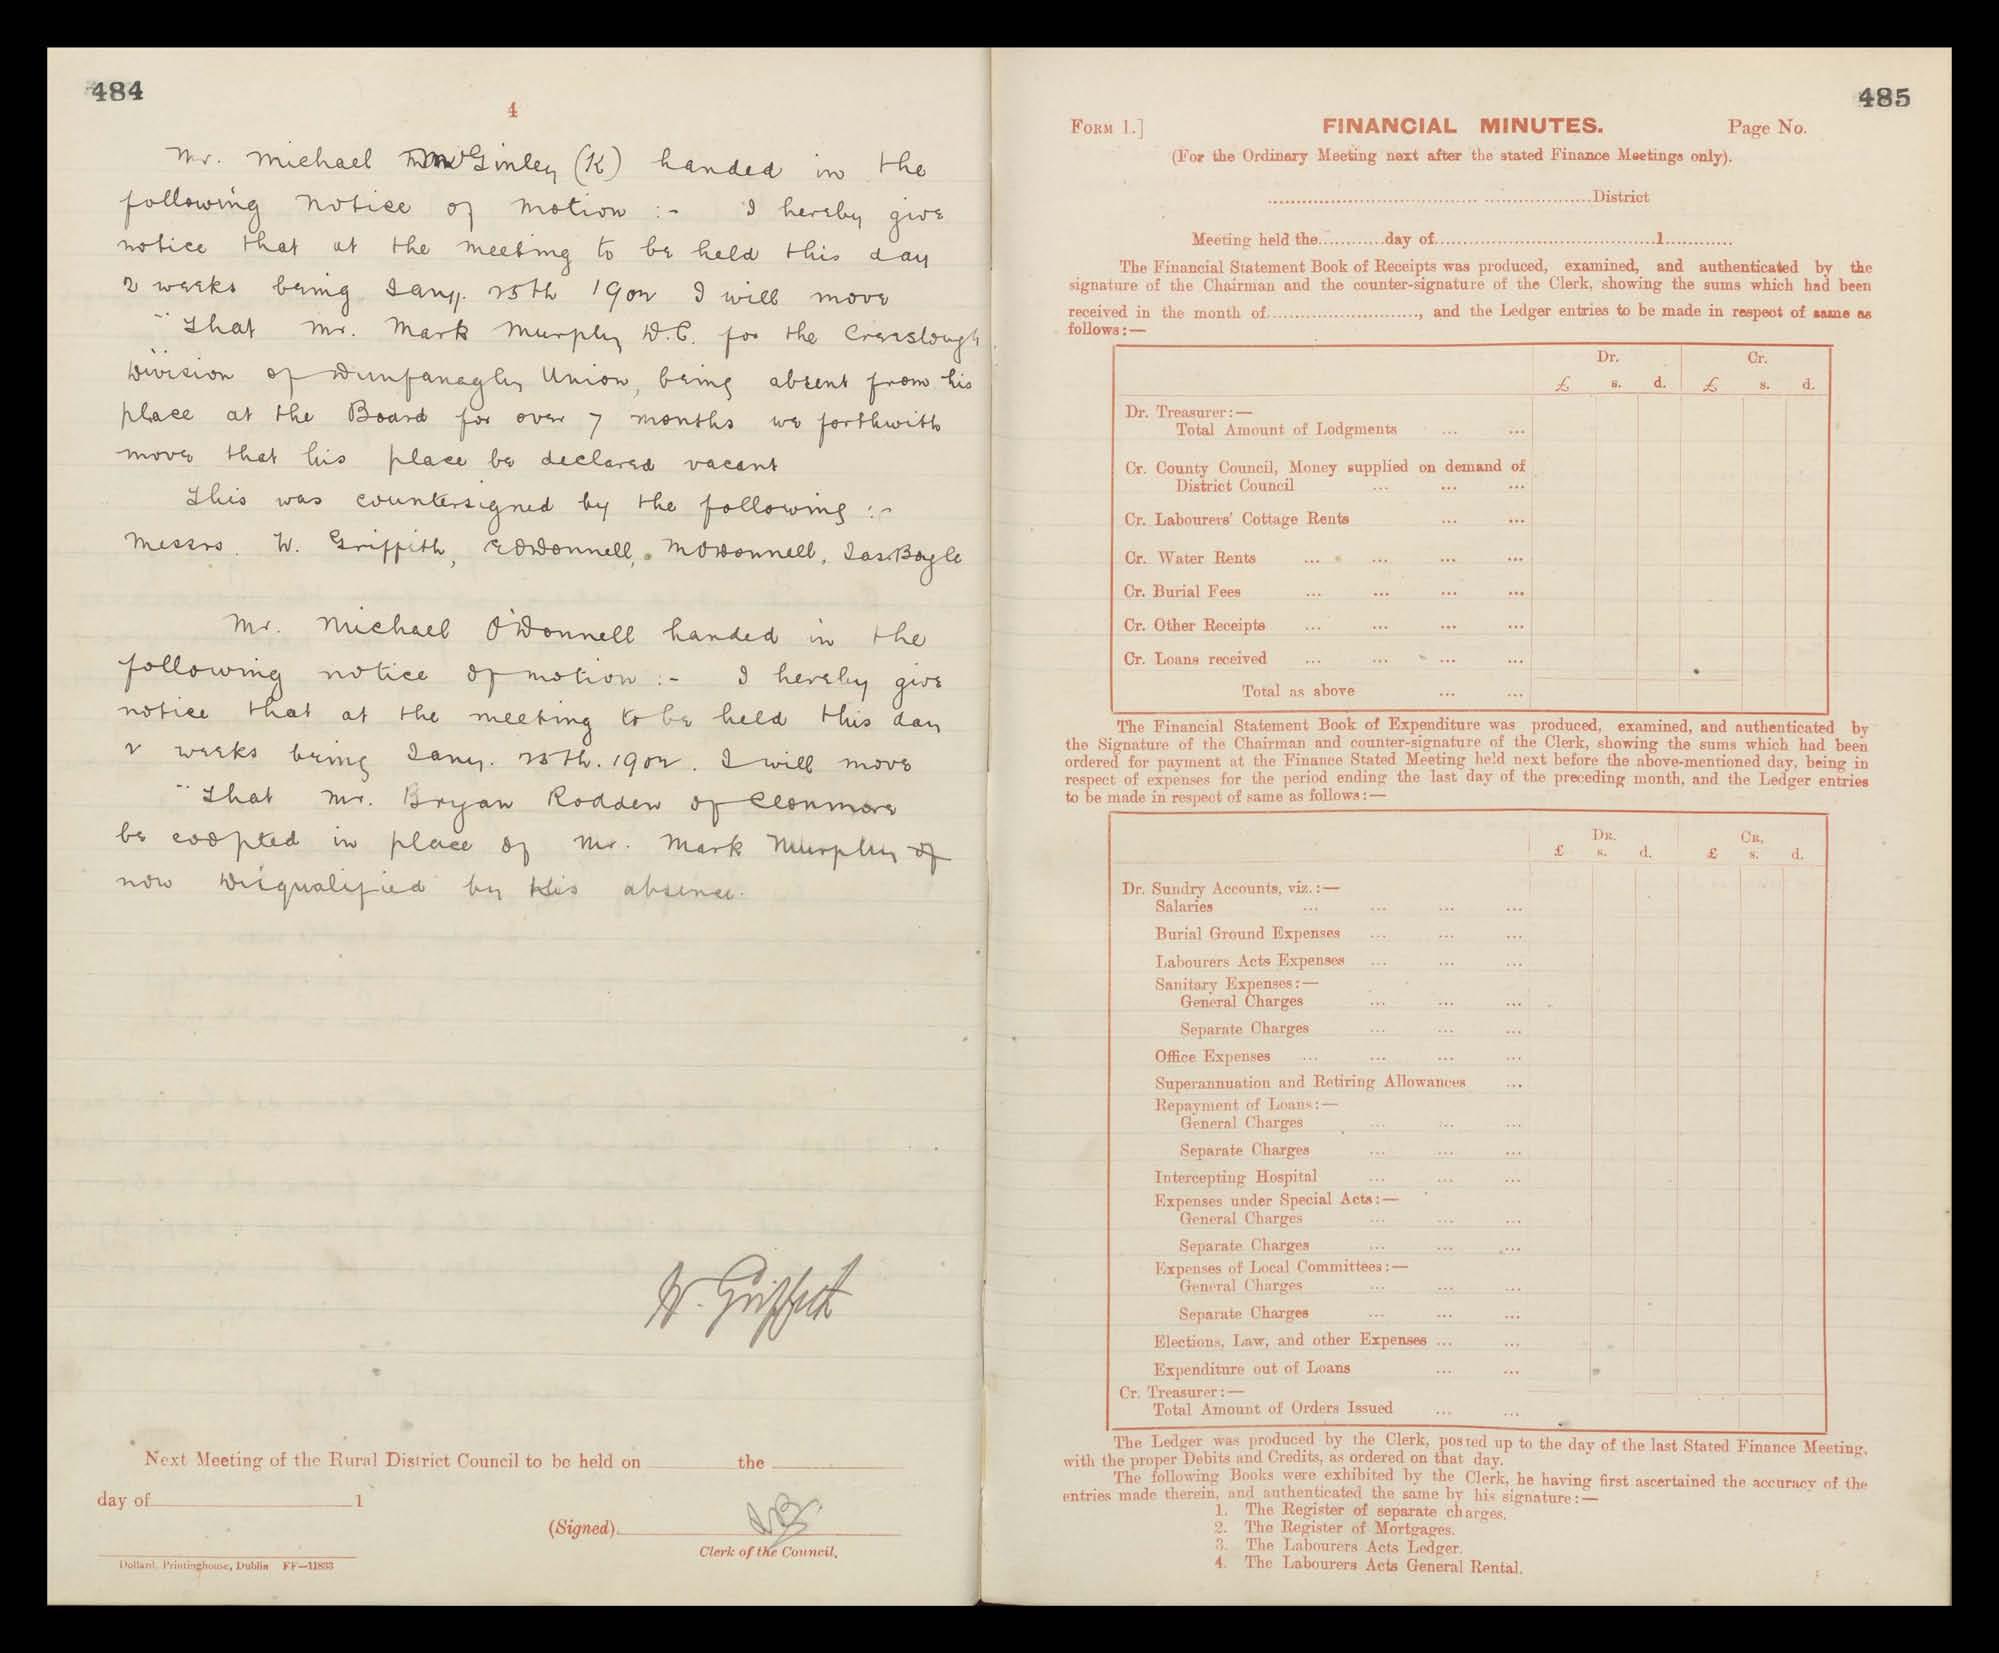 484
4
Mr. Michael McGinley (K) handed in the
following notice of motion :- I hereby give
notice that at the meeting to be held this day
2 weeks being Jany. 25th 1902 I will move
"That Mr. Mark Murphy D.C. for the Creeslough
Division of Dunfanaghy Union, being absent from his
place at the Board for over 7 months we forthwith
move that his place be declared vacant
This was countersigned by the following :-
Messrs. W. Griffith, E O'Donnell, M O'Donnell, Jas. Boyle
Mr. Michael O'Donnell handed in the
following notice of motion :- I hereby give
notice that at the meeting to be held this day
2 weeks being Jany. 25th. 1902. I will move
"That Mr. Bryan Rodden of Clonmore
be coopted in place of Mr. Mark Murphy of
now Disqualified by His absence.
W. Griffith
Next Meeting of the Rural District Council to be held on the
day of 1
(Signed)
Clerk of the Council.
Dollard, Printinghouse, Dublin FF—11833
485
FORM 1.] FINANCIAL MINUTES. Page No.
(For the Ordinary Meeting next after the stated Finance Meetings only).
District
Meeting held the............day of........................................1............
The Financial Statement Book of Receipts was produced, examined, and authenticated by the
signature of the Chairman and the counter-signature of the Clerk, showing the sums which had been
received in the month of..........................., and the Ledger entries to be made in respect of same as
follows:—
Dr. Cr.
£ s. d. £ s. d.
Dr. Treasurer:—
Total Amount of Lodgments ... ...
Cr. County Council, Money supplied on demand of
District Council ... ... ...
Cr. Labourers' Cottage Rents ... ...
Cr. Water Rents ... ... ... ...
Cr. Burial Fees ... ... ... ...
Cr. Other Receipts ... ... ... ...
Cr. Loans received ... ... ... ...
Total as above ... ...
The Financial Statement Book of Expenditure was produced, examined, and authenticated by
the Signature of the Chairman and counter-signature of the Clerk, showing the sums which had been
ordered for payment at the Finance Stated Meeting held next before the above-mentioned day, being in
respect of expenses for the period ending the last day of the preceding month, and the Ledger entries
to be made in respect of same as follows:—
DR. CR.
£ s. d. £ s. d.
Dr. Sundry Accounts, viz.:—
Salaries ... ... ... ...
Burial Ground Expenses ... ... ...
Labourers Acts Expenses ... ... ...
Sanitary Expenses:—
General Charges ... ... ...
Separate Charges ... ... ...
Office Expenses ... ... ... ...
Superannuation and Retiring Allowances ...
Repayment of Loans:—
General Charges ... ... ...
Separate Charges ... ... ...
Intercepting Hospital ... ... ...
Expenses under Special Acts:—
General Charges ... ... ...
Separate Charges ... ... ...
Expenses of Local Committees:—
General Charges ... ... ...
Separate Charges ... ... ...
Elections, Law, and other Expenses ... ...
Expenditure out of Loans ... ...
Cr. Treasurer:—
Total Amount of Orders Issued ... ...
The Ledger was produced by the Clerk, posted up to the day of the last Stated Finance Meeting,
with the proper Debits and Credits, as ordered on that day.
The following Books were exhibited by the Clerk, he having first ascertained the accuracy of the
entries made therein, and authenticated the same by his signature:—
1. The Register of separate charges.
2. The Register of Mortgages.
3. The Labourers Acts Ledger.
4. The Labourers Acts General Rental.